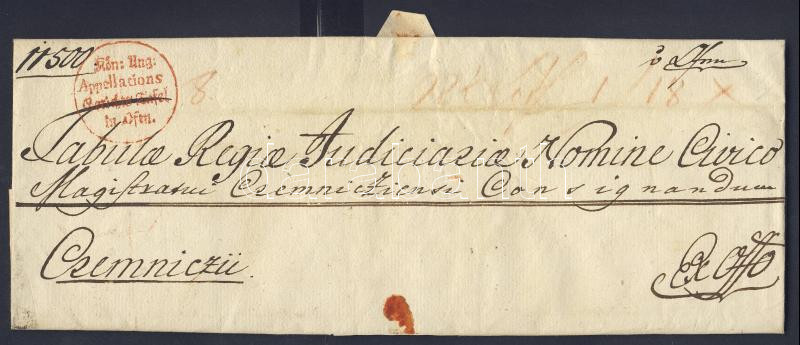 11500.
Kön: Ung:
Appellations
Gerichts Tafel
in Ofen.
8.
Tabulæ Regiæ Judiciariæ Nomine Civico
Magistratui Czemnicziensi Consignandum
Czemniczii.
Ex Offo